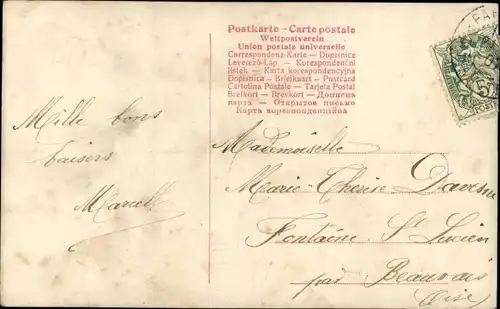 Postkarte - Carte postale
Weltpostverein
Union postale universelle
Correspondenz-Karte - Dopisnice
Levelező-Lap - Korespondenční
lístek - Karta korespondencyjna
Dopisnica - Briefkaart - Postcard
Cartolina Postale - Tarjeta Postal
Brefkort - Brevkort - Дописна
карта - Открытое письмо
Карта кореспонденційна
Mille bons
baisers
Marcelle
Mademoiselle
Marie-Thérèse Davesne
Fontaine St Lucien
par Beauvais
(Oise)
PAR
5